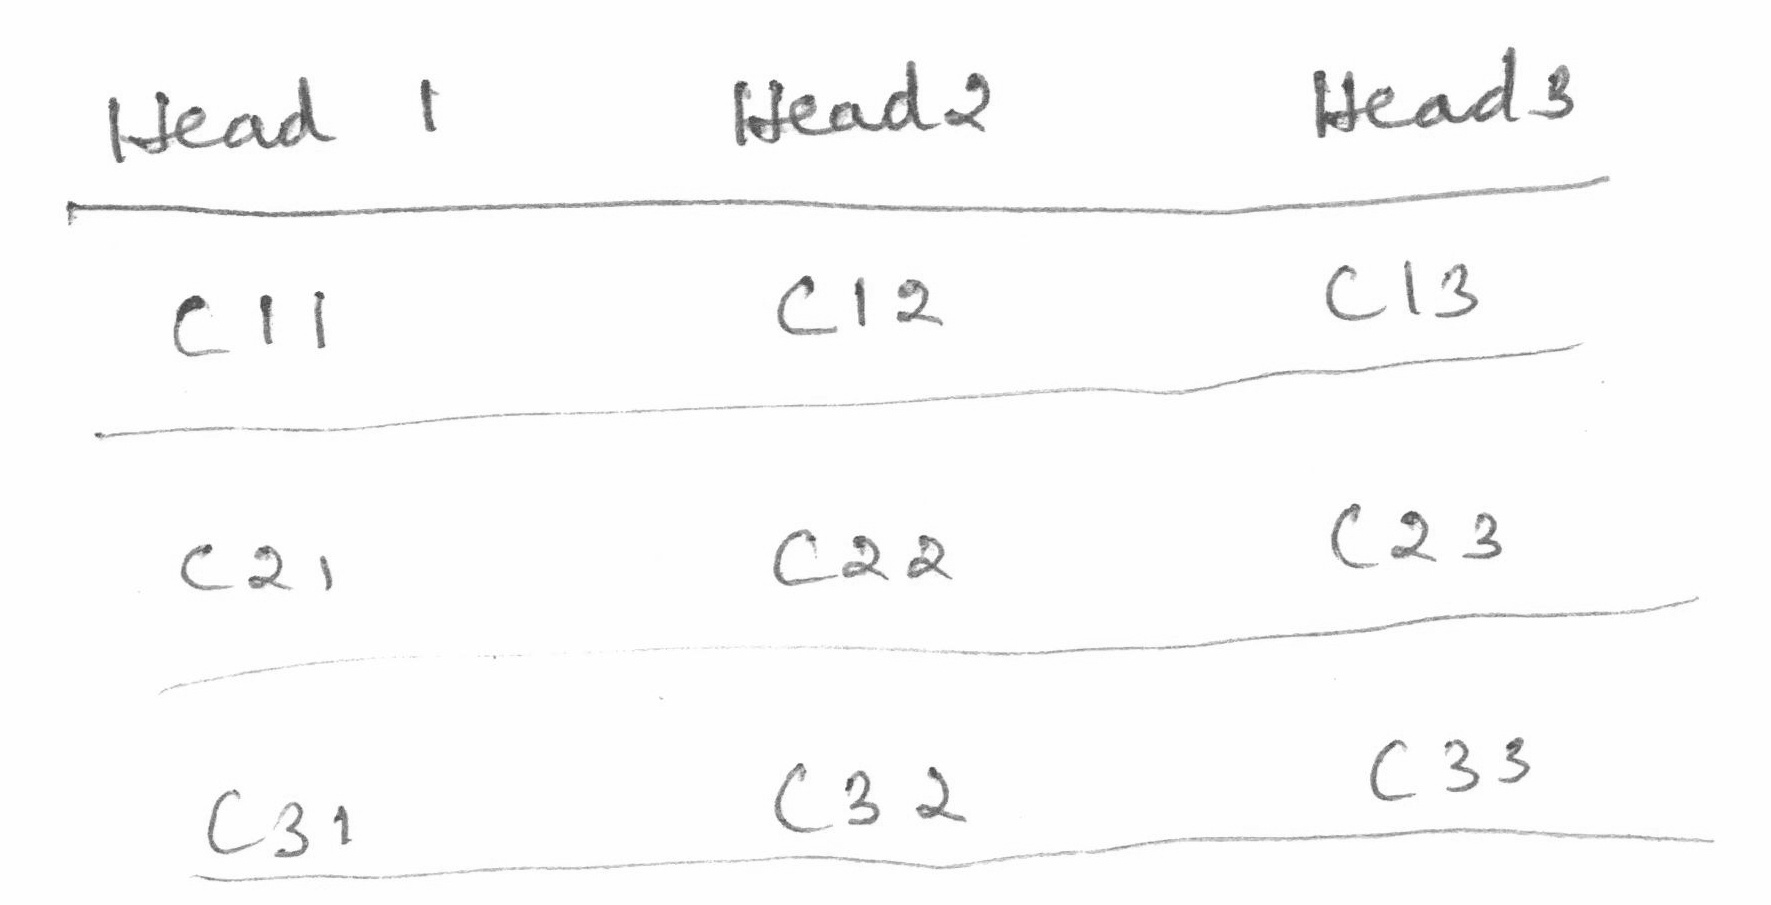 Head 1 Head2 Head3
C11 C12 C13
C21 C22 C23
C31 C32 C33